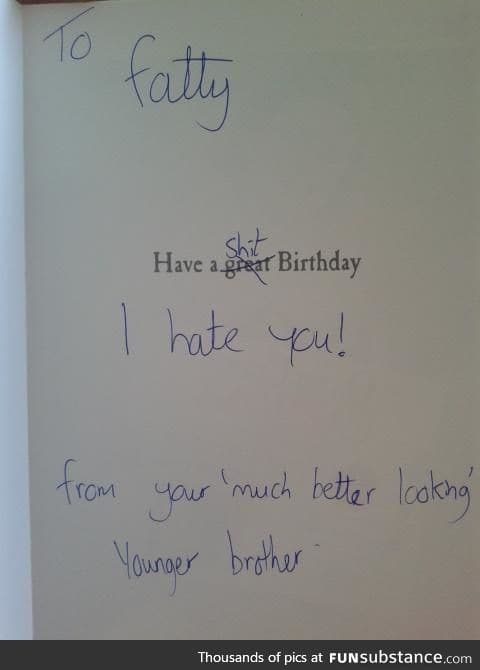 To
fatty
shit
Have a great Birthday
I hate you!
from your 'much better looking'
Younger brother
Thousands of pics at FUNsubstance.com